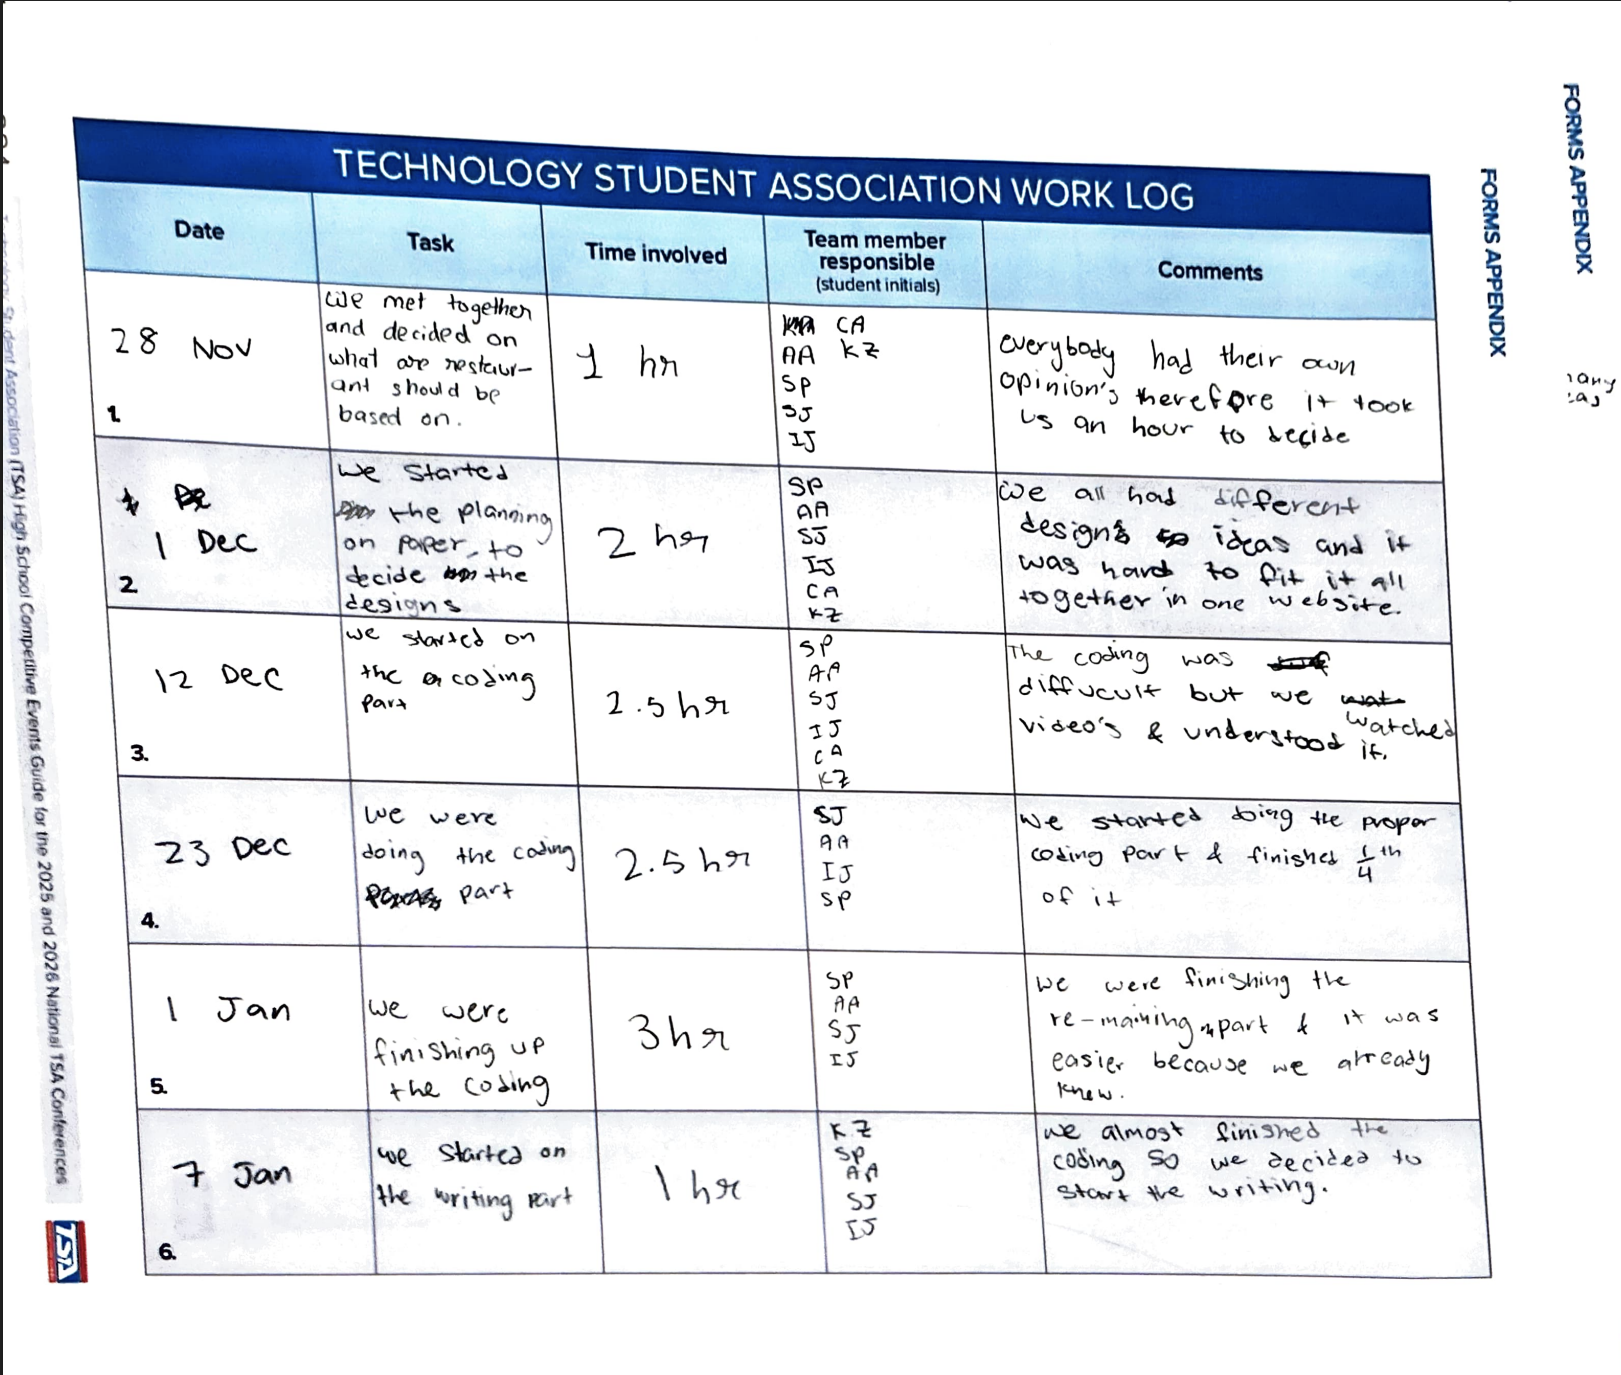 FORMS APPENDIX
FORMS APPENDIX
TECHNOLOGY STUDENT ASSOCIATION WORK LOG
Date
Task
Time involved
Team member
responsible
(student initials)
Comments
1.
28 Nov
We met together
and decided on
what are restaur-
ant should be
based on.
1 hr
CA
AA KZ
SP
SJ
IJ
everybody had their own
opinion's therefore it took
us an hour to decide
2
1 Dec
We started
the planning
on paper, to
decide the
designs
2 hr
SP
AA
SJ
IJ
CA
KZ
We all had different
designs ideas and it
was hard to fit it all
together in one website.
3.
12 Dec
we started on
the coding
part
2.5 hr
SP
AA
SJ
IJ
CA
KZ
The coding was
diffucult but we
watched
video's & understood it.
4.
23 Dec
we were
doing the coding
part
2.5 hr
SJ
AA
IJ
SP
We started doing the propor
coding part & finished 1/4 th
of it
5.
1 Jan
we were
finishing up
the coding
3 hr
SP
AA
SJ
IJ
we were finishing the
re-maining part & it was
easier because we already
knew.
6.
7 Jan
we started on
the writing part
1 hr
KZ
SP
AA
SJ
IJ
we almost finished the
coding so we decided to
start the writing.
Technology Student Association (TSA) High School Competitive Events Guide for the 2025 and 2026 National TSA Conferences
TSA